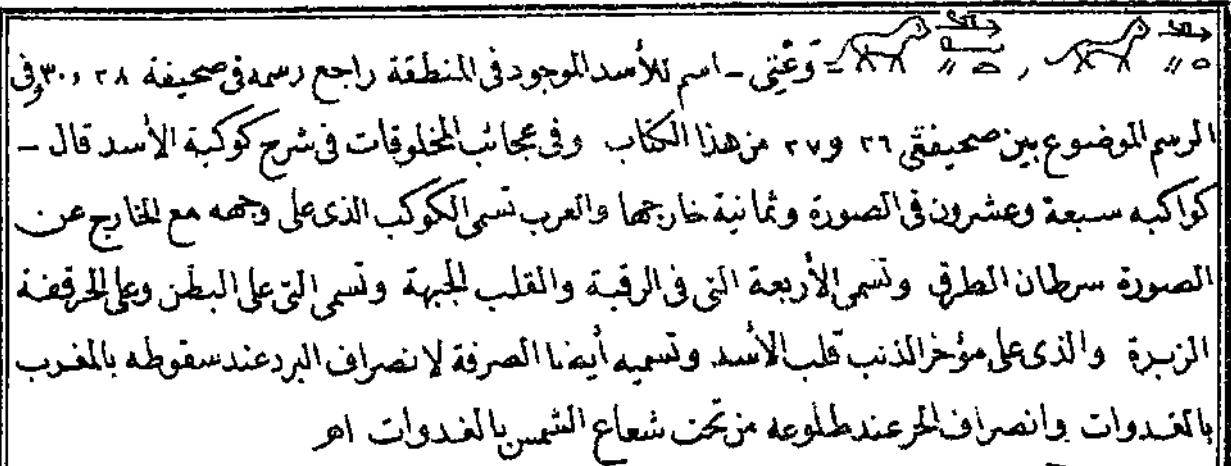 وَعْتِى - اسم للأسد الموجود فى المنطقة راجع رسمه فى صحيفة ٢٨ و ٣٠ وفى
الرسم الموضوع بين صحيفتى ٢٦ و ٢٧ من هذا الكتاب وفى عجائب المخلوقات فى شرح كوكبة الأسد قال -
كواكبه سبعة وعشرون فى الصورة وثمانية خارجها والعرب تسمى الكوكب الذى على وجهه مع الخارج عن
الصورة سرطان الطرق وتسمى الأربعة التى فى الرقبة والقلب الجبهة وتسمى التى على البطن وعلى الحرقفة
الزبرة والذى على مؤخر الذنب قلب الأسد وتسميه أيضا الصرفة لانصراف البرد عند سقوطه بالمغرب
بالغدوات وانصراف الحر عند طلوعه من تحت شعاع الشمس بالغدوات اهـ